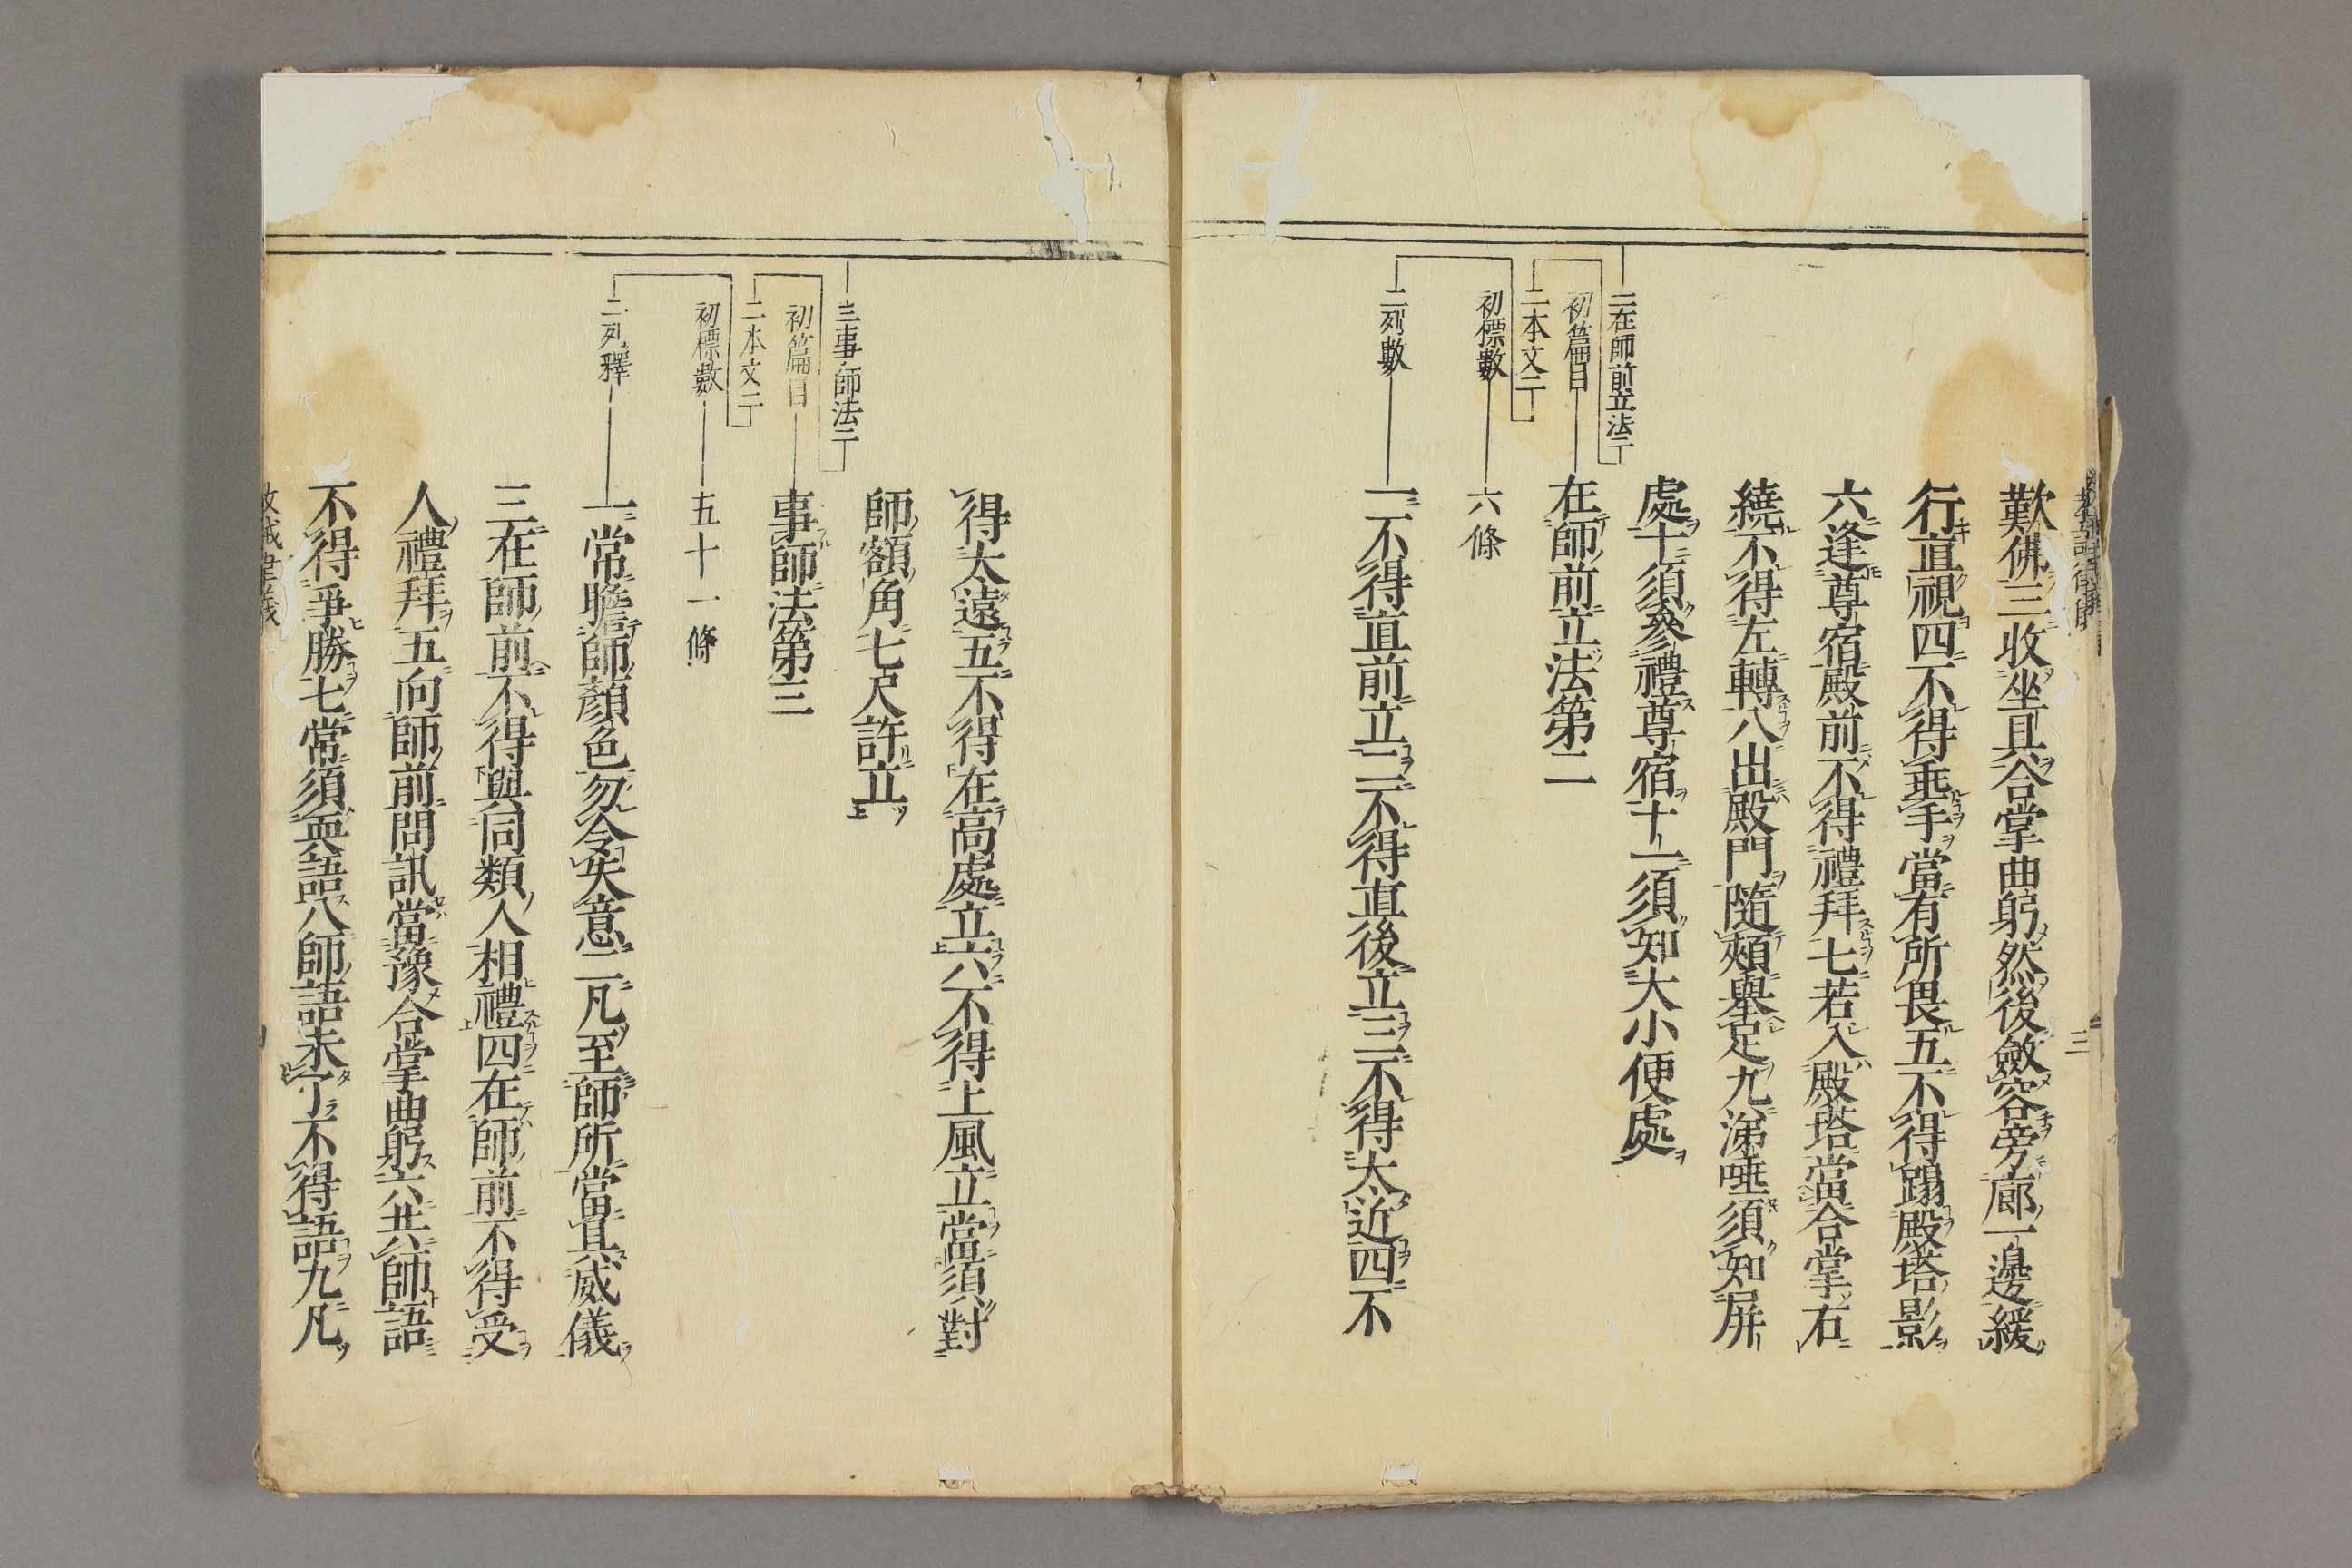 歎佛三收坐具合掌曲躬然後斂容旁廊一邊緩
行直視四不得垂手當有所畏五不得蹋殿塔影
六逢尊宿殿前不得禮拜七若入殿塔當合掌右
繞不得左轉八出殿門隨頰舉足九涕唾須知屏
處十須參禮尊宿十一須知大小便處
二在師前立法二
初篇目
在師前立法第二
二本文二
初標數
六條
二列數
一不得直前立二不得直後立三不得太近四不
得太遠五不得在高處立六不得上風立當須對
師額角七尺許立
三事師法二
初篇目
事師法第三
二本文二
初標數
五十一條
二列釋
一常瞻師顏色勿令失意二凡至師所當具威儀
三在師前不得與同類人相禮四在師前不得受
人禮拜五向師前問訊當豫合掌曲躬六共師語
不得爭勝七常須耎語八師語未了不得語九凡